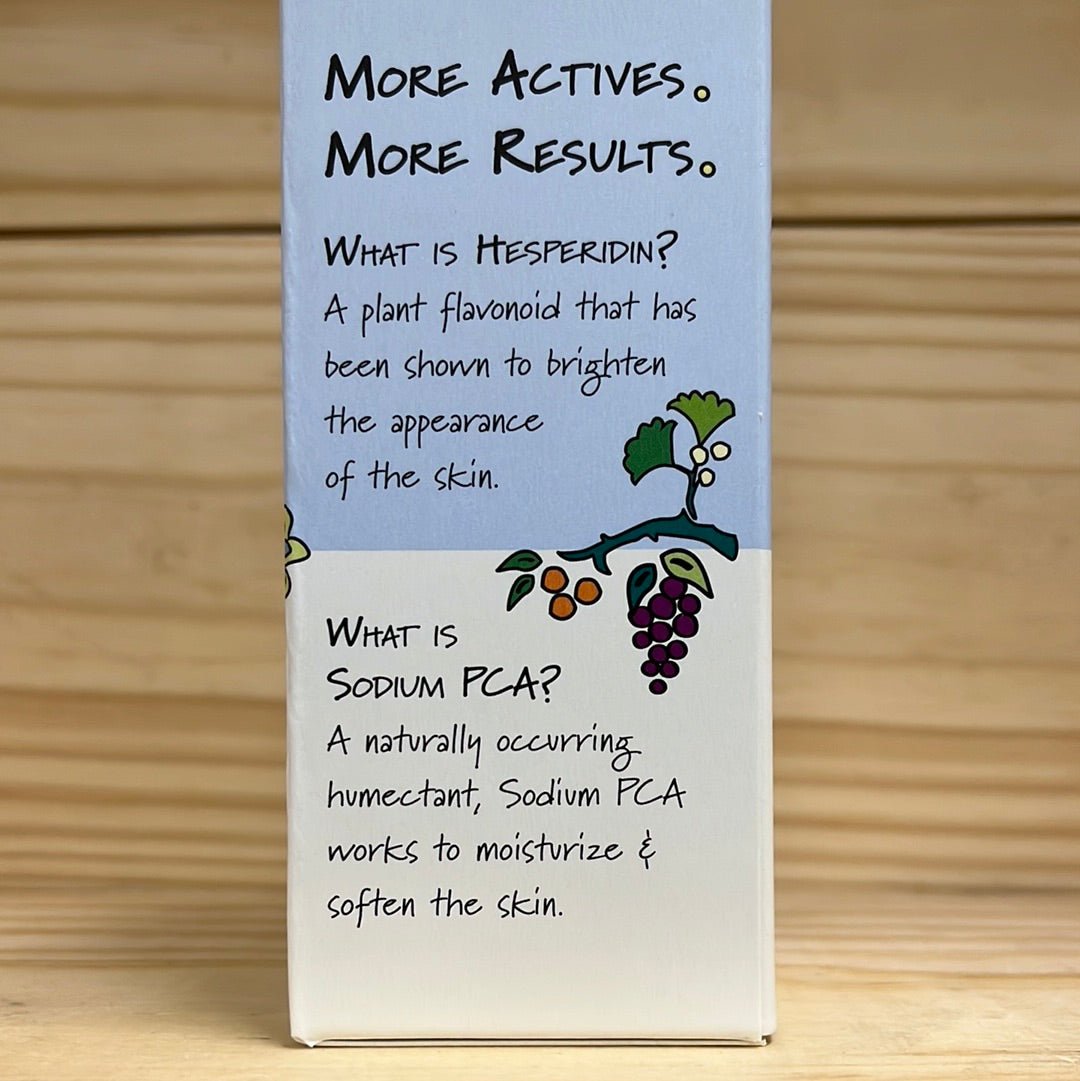 MORE ACTIVES.
MORE RESULTS.
WHAT IS HESPERIDIN?
A plant flavonoid that has
been shown to brighten
the appearance
of the skin.
WHAT IS
SODIUM PCA?
A naturally occurring
humectant, Sodium PCA
works to moisturize &
soften the skin.